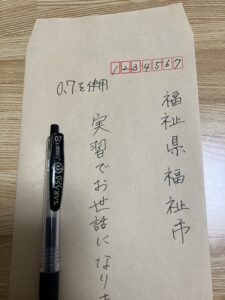 1234567
0.7を使用
福祉県福祉市
実習でお世話になりま
0.7
SARASA